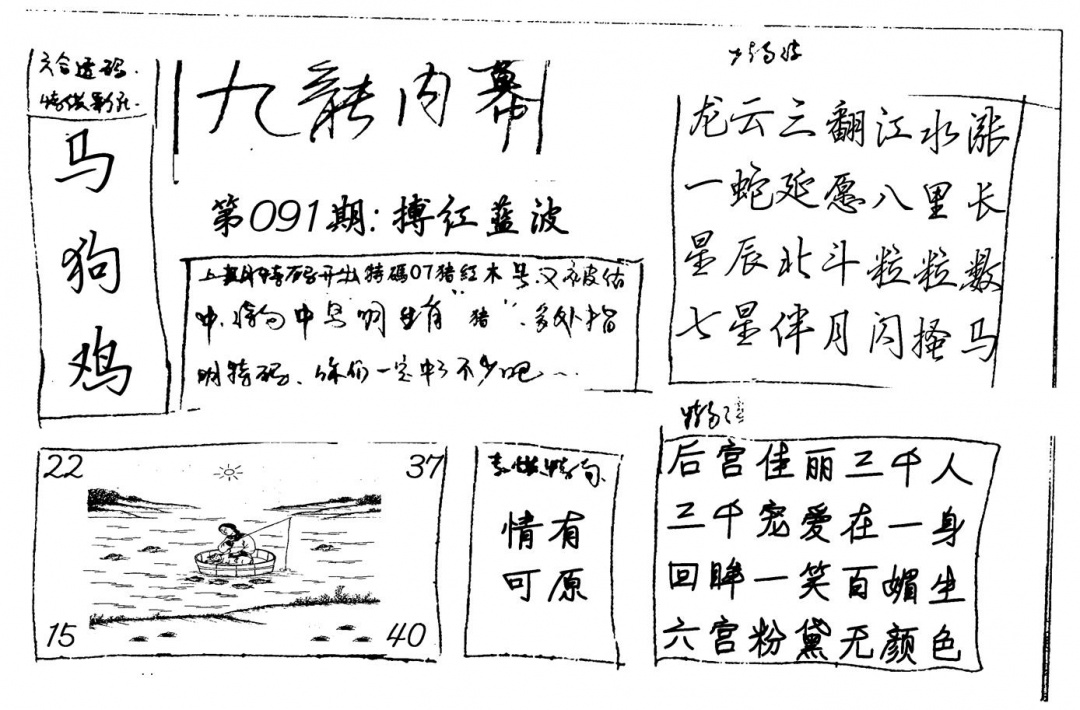 六合透码
马
狗
鸡
九龍内幕
第091期:搏红蓝波
上期特码开出特碼07猪红木号又被估
中,特句中早明点有"猪",多处指
明特码、你们一定中了不少吧
龙云三翻江水涨
一蛇延愿八里长
星辰北斗粒粒数
七星伴月闪搔马
22
37
15
40
特句
情有
可原
后宫佳丽三千人
三千宠爱在一身
回眸一笑百媚生
六宫粉黛无颜色